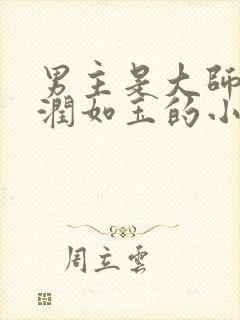 男主是大師
潤如玉的小
周立雲